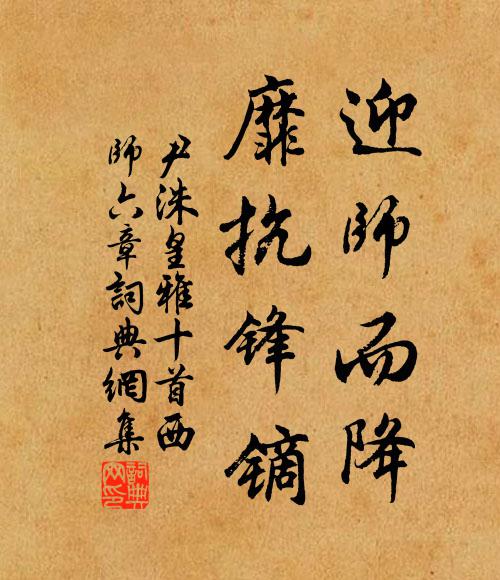 迎師而降
靡抗鋒鏑
尹洙皇雅十首西
師六章詞典網集
詞典網印